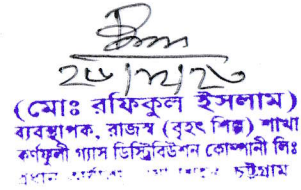 (মোঃ রফিকুল ইসলাম)
ব্যবস্থাপক, রাজস্ব (বৃহৎ শিল্প) শাখা
কর্ণফুলী গ্যাস ডিস্ট্রিবিউশন কোম্পানী লিঃ
প্রধান চট্টগ্রাম